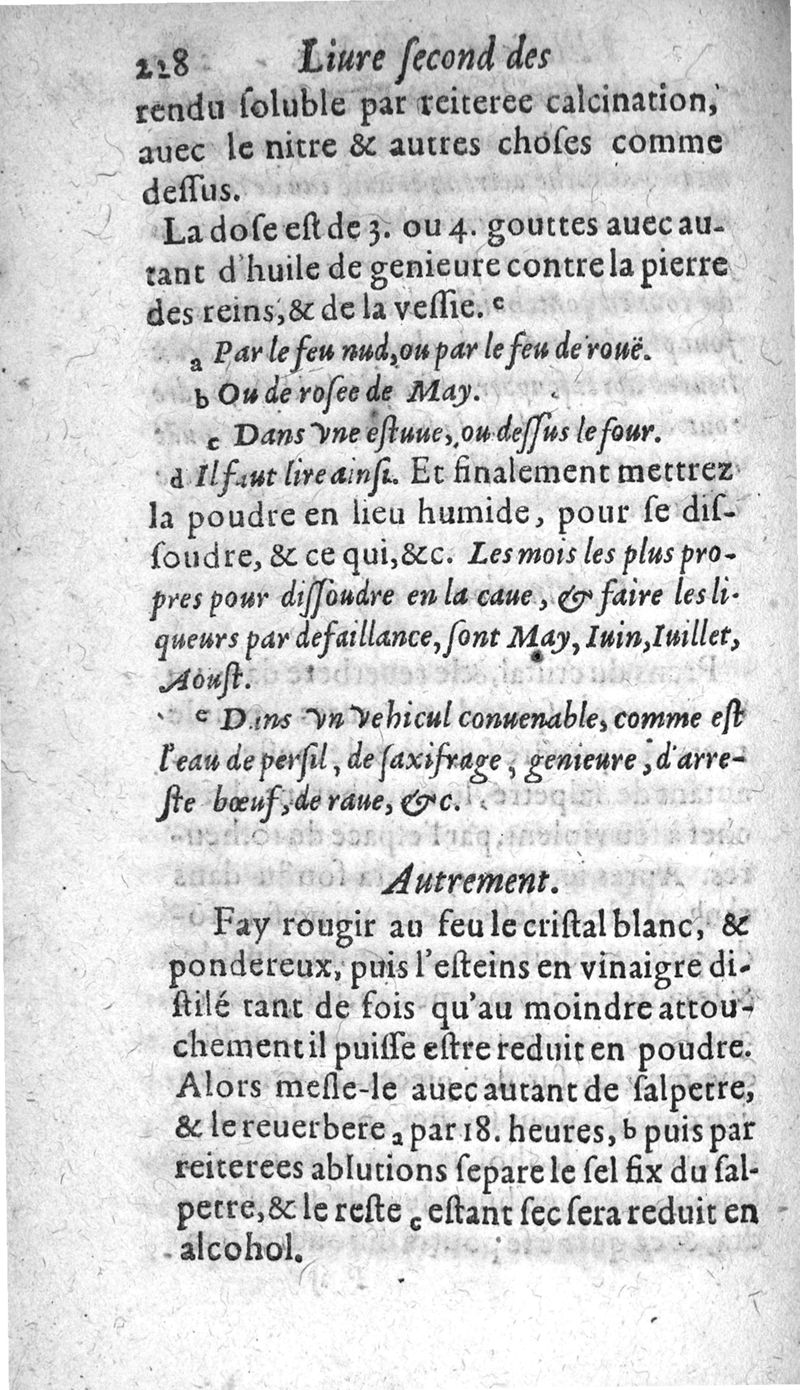 228 Liure ſecond des
rendu ſoluble par reiteree calcination,
auec le nitre & autres choſes comme
deſſus.
La doſe eſt de 3. ou 4. gouttes auec au-
tant d'huile de genieure contre la pierre
des reins, & de la veſſie. e
a Par le feu nud, ou par le feu de rouë.
b Ou de roſee de May.
c Dans vne eſtuue, ou deſſus le four.
d Il faut lire ainſi. Et finalement mettrez
la poudre en lieu humide, pour ſe diſ-
ſoudre, & ce qui, &c. Les mois les plus pro-
pres pour diſſoudre en la caue, & faire les li-
queurs par defaillance, ſont May, Iuin, Iuillet,
Aouſt.
e Dans vn vehicul conuenable, comme eſt
l'eau de perſil, de ſaxifrage, genieure, d'arre-
ſte bœuf, de raue, &c.
Autrement.
Fay rougir au feu le criſtal blanc, &
pondereux, puis l'eſteins en vinaigre di-
ſtilé tant de fois qu'au moindre attou-
chement il puiſſe eſtre reduit en poudre.
Alors meſle-le auec autant de ſalpetre,
& le reuerbere a par 18. heures, b puis par
reiterees ablutions ſepare le ſel fix du ſal-
petre, & le reſte c eſtant ſec ſera reduit en
alcohol.